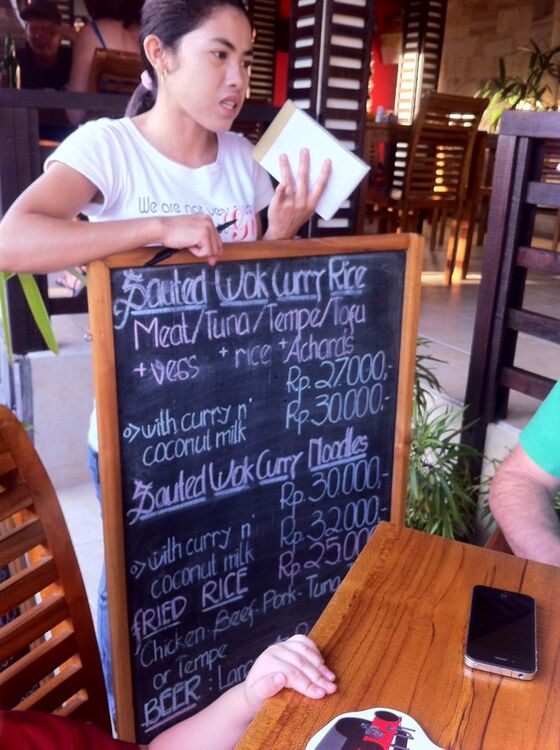 We are not
Sauted Wok Curry Rice
Meat/Tuna/Tempe/Tofu
+ vegs + rice + Achards
Rp. 27.000,-
with curry n' Rp. 30.000,-
coconut milk
Sauted Wok Curry Noodles
Rp. 30.000,-
with curry n' Rp. 32.000,-
coconut milk Rp. 25.000
FRIED RICE
Chicken-Beef-Pork-Tuna
or Tempe
BEER: